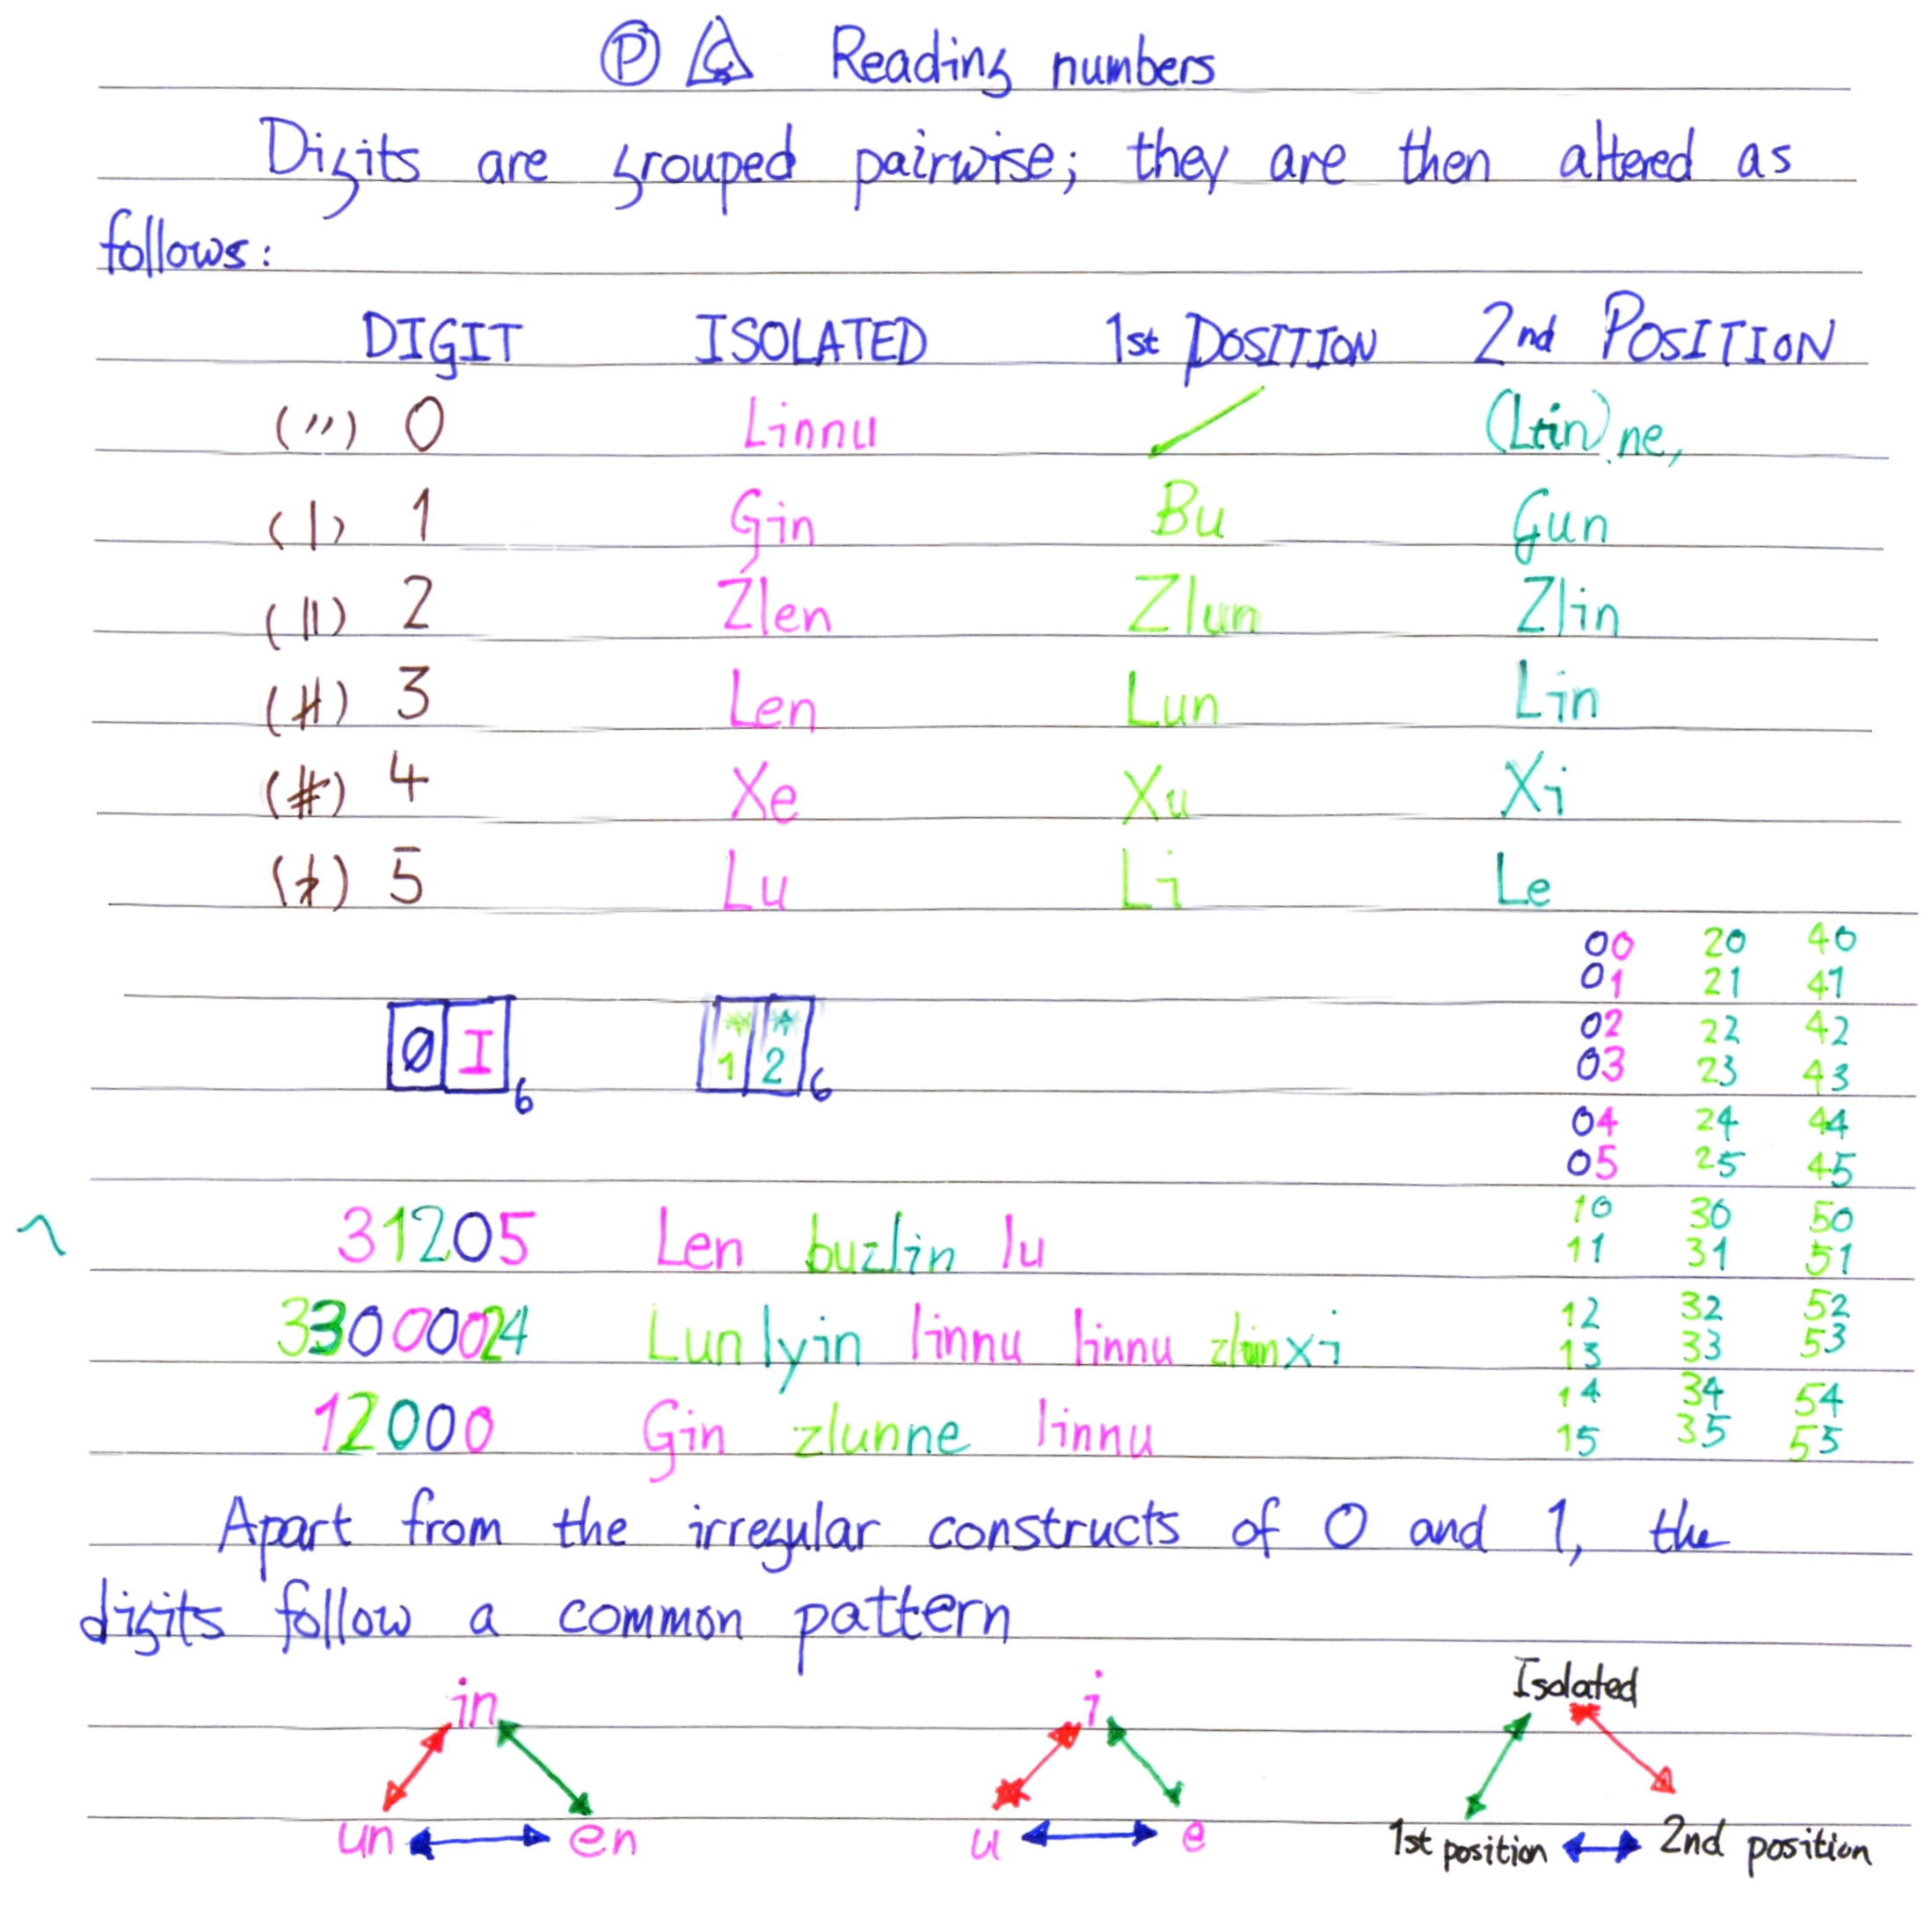 P Reading numbers
Digits are grouped pairwise; they are then altered as
follows:
DIGIT ISOLATED 1st POSITION 2nd POSITION
(〃) 0 Linnu (Lin) ne,
(|) 1 Gin Bu Gun
(||) 2 Zlen Zlun Zlin
3 Len Lun Lin
(#) 4 Xe Xu Xi
5 Lu Li Le
00 20 40
01 21 41
Ø I 6 * 1 * 2 6
02 22 42
03 23 43
04 24 44
05 25 45
31205 Len buzlin lu
10 30 50
11 31 51
33000024 Lun lyin linnu linnu zlunxi
12 32 52
13 33 53
12000 Gin zlunne linnu
14 34 54
15 35 55
Apart from the irregular constructs of 0 and 1, the
digits follow a common pattern
in i Isolated
un en u e 1st position 2nd position